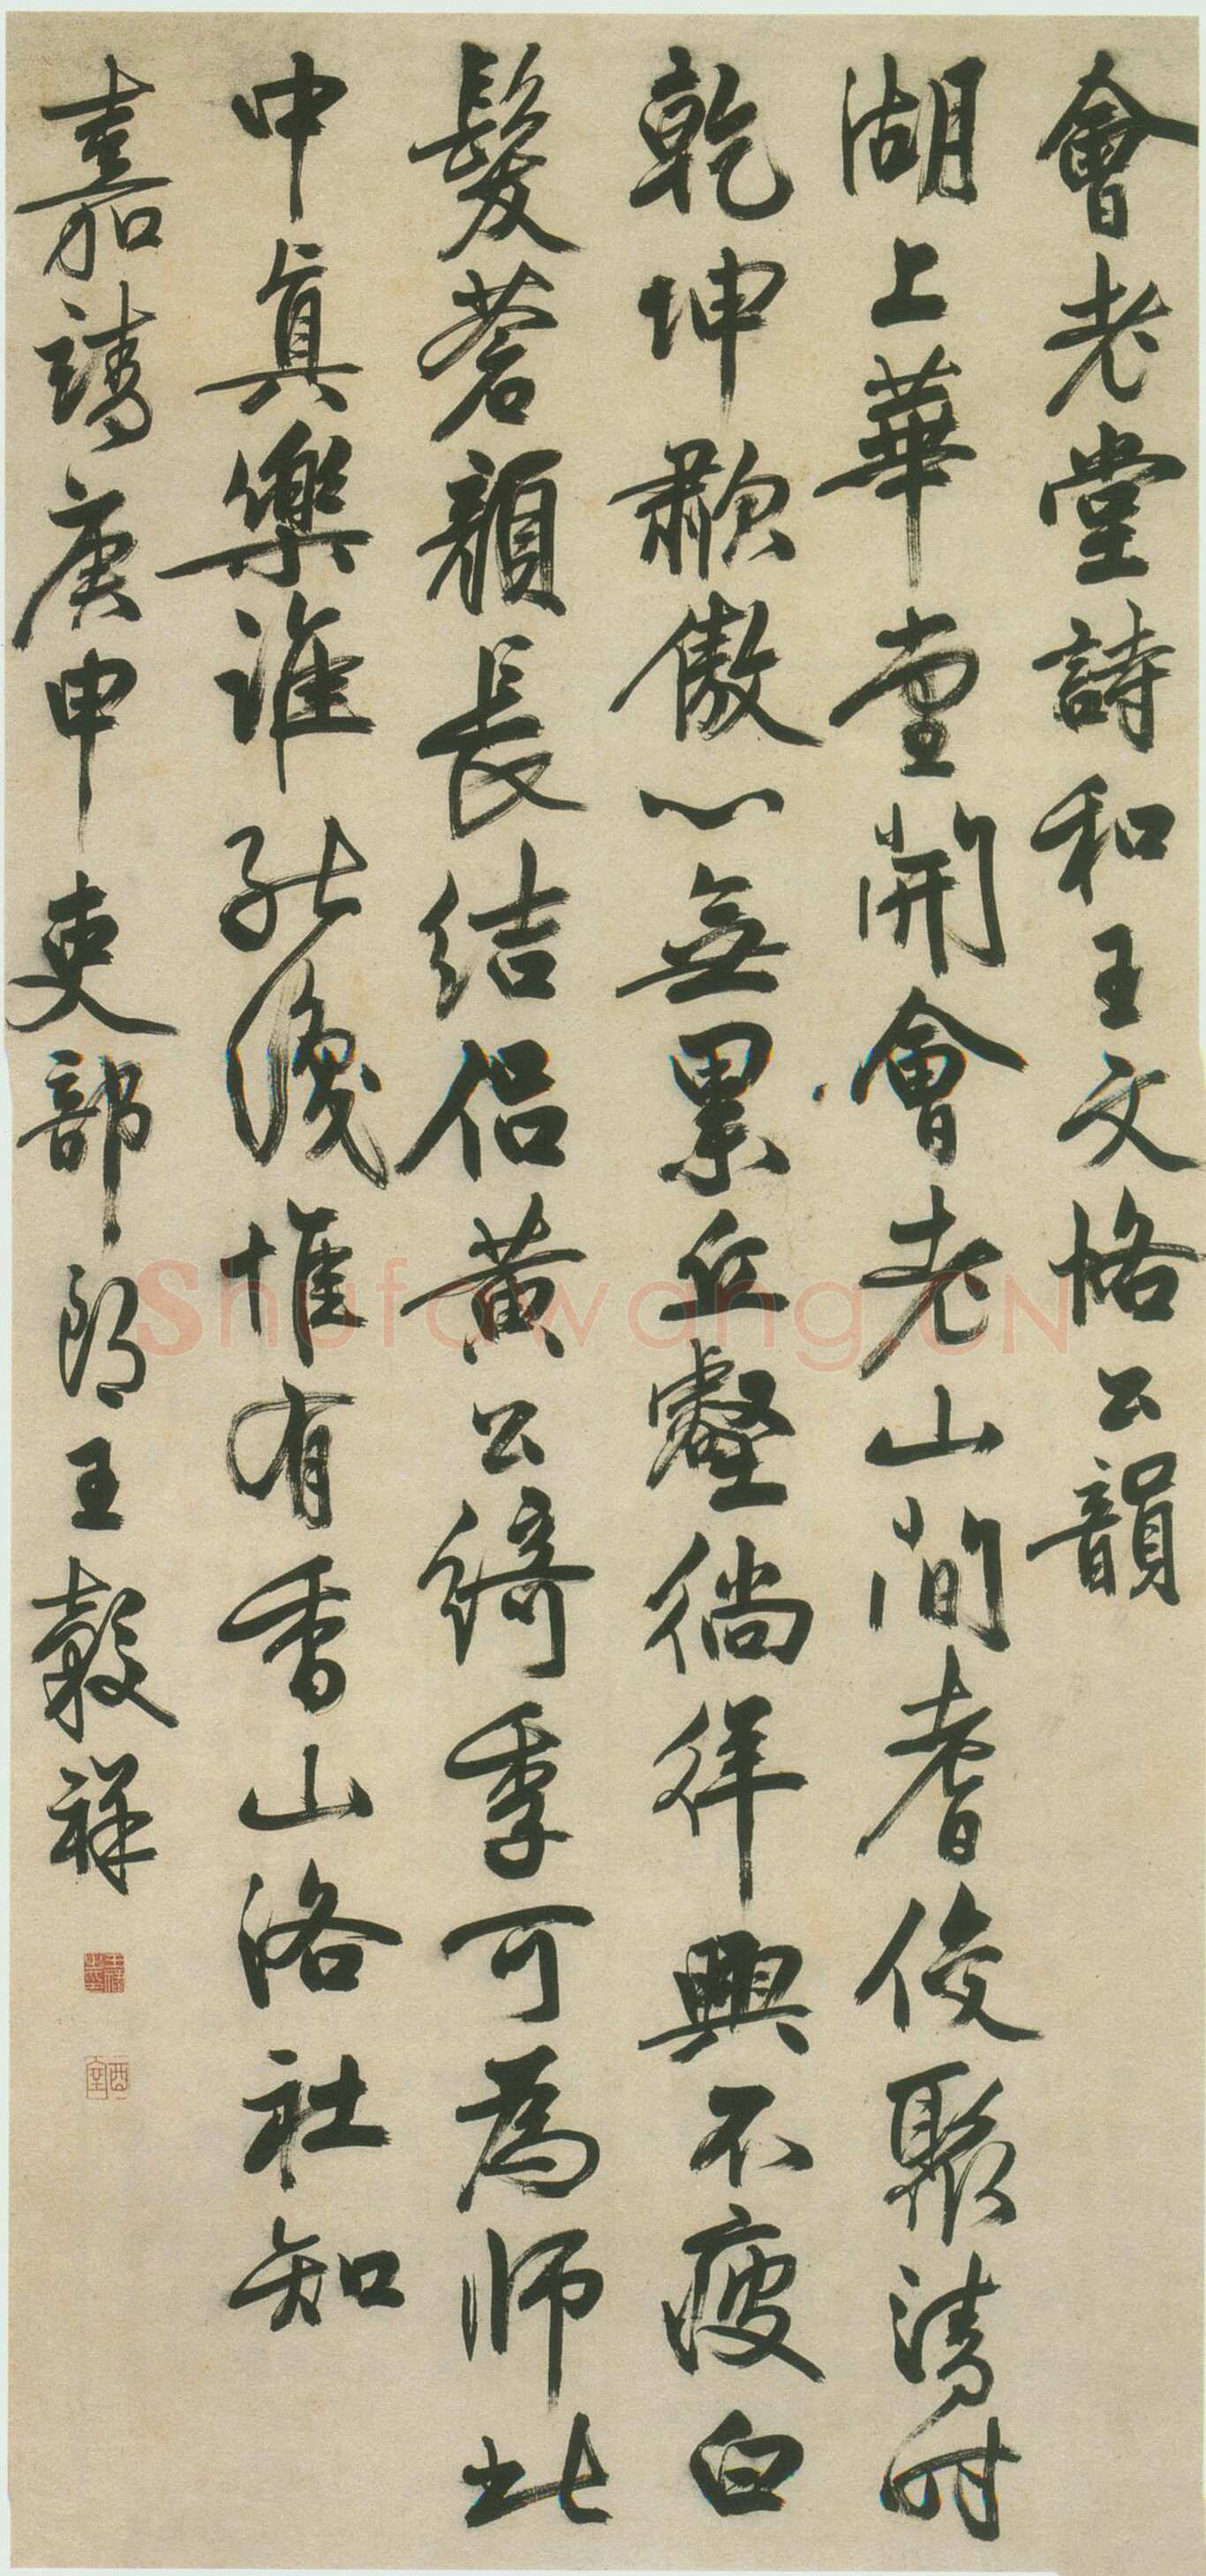 會老堂詩和王文恪公韻
湖上華堂開會老山間耆俊聚清時
乾坤歗傲心無累丘壑徜徉興不疲白
髮蒼顏長結侶黃公綺季可為師此
中真樂誰能識惟有香山洛社知
嘉靖庚申吏部郎王穀祥
酉室
Shufawang.CN